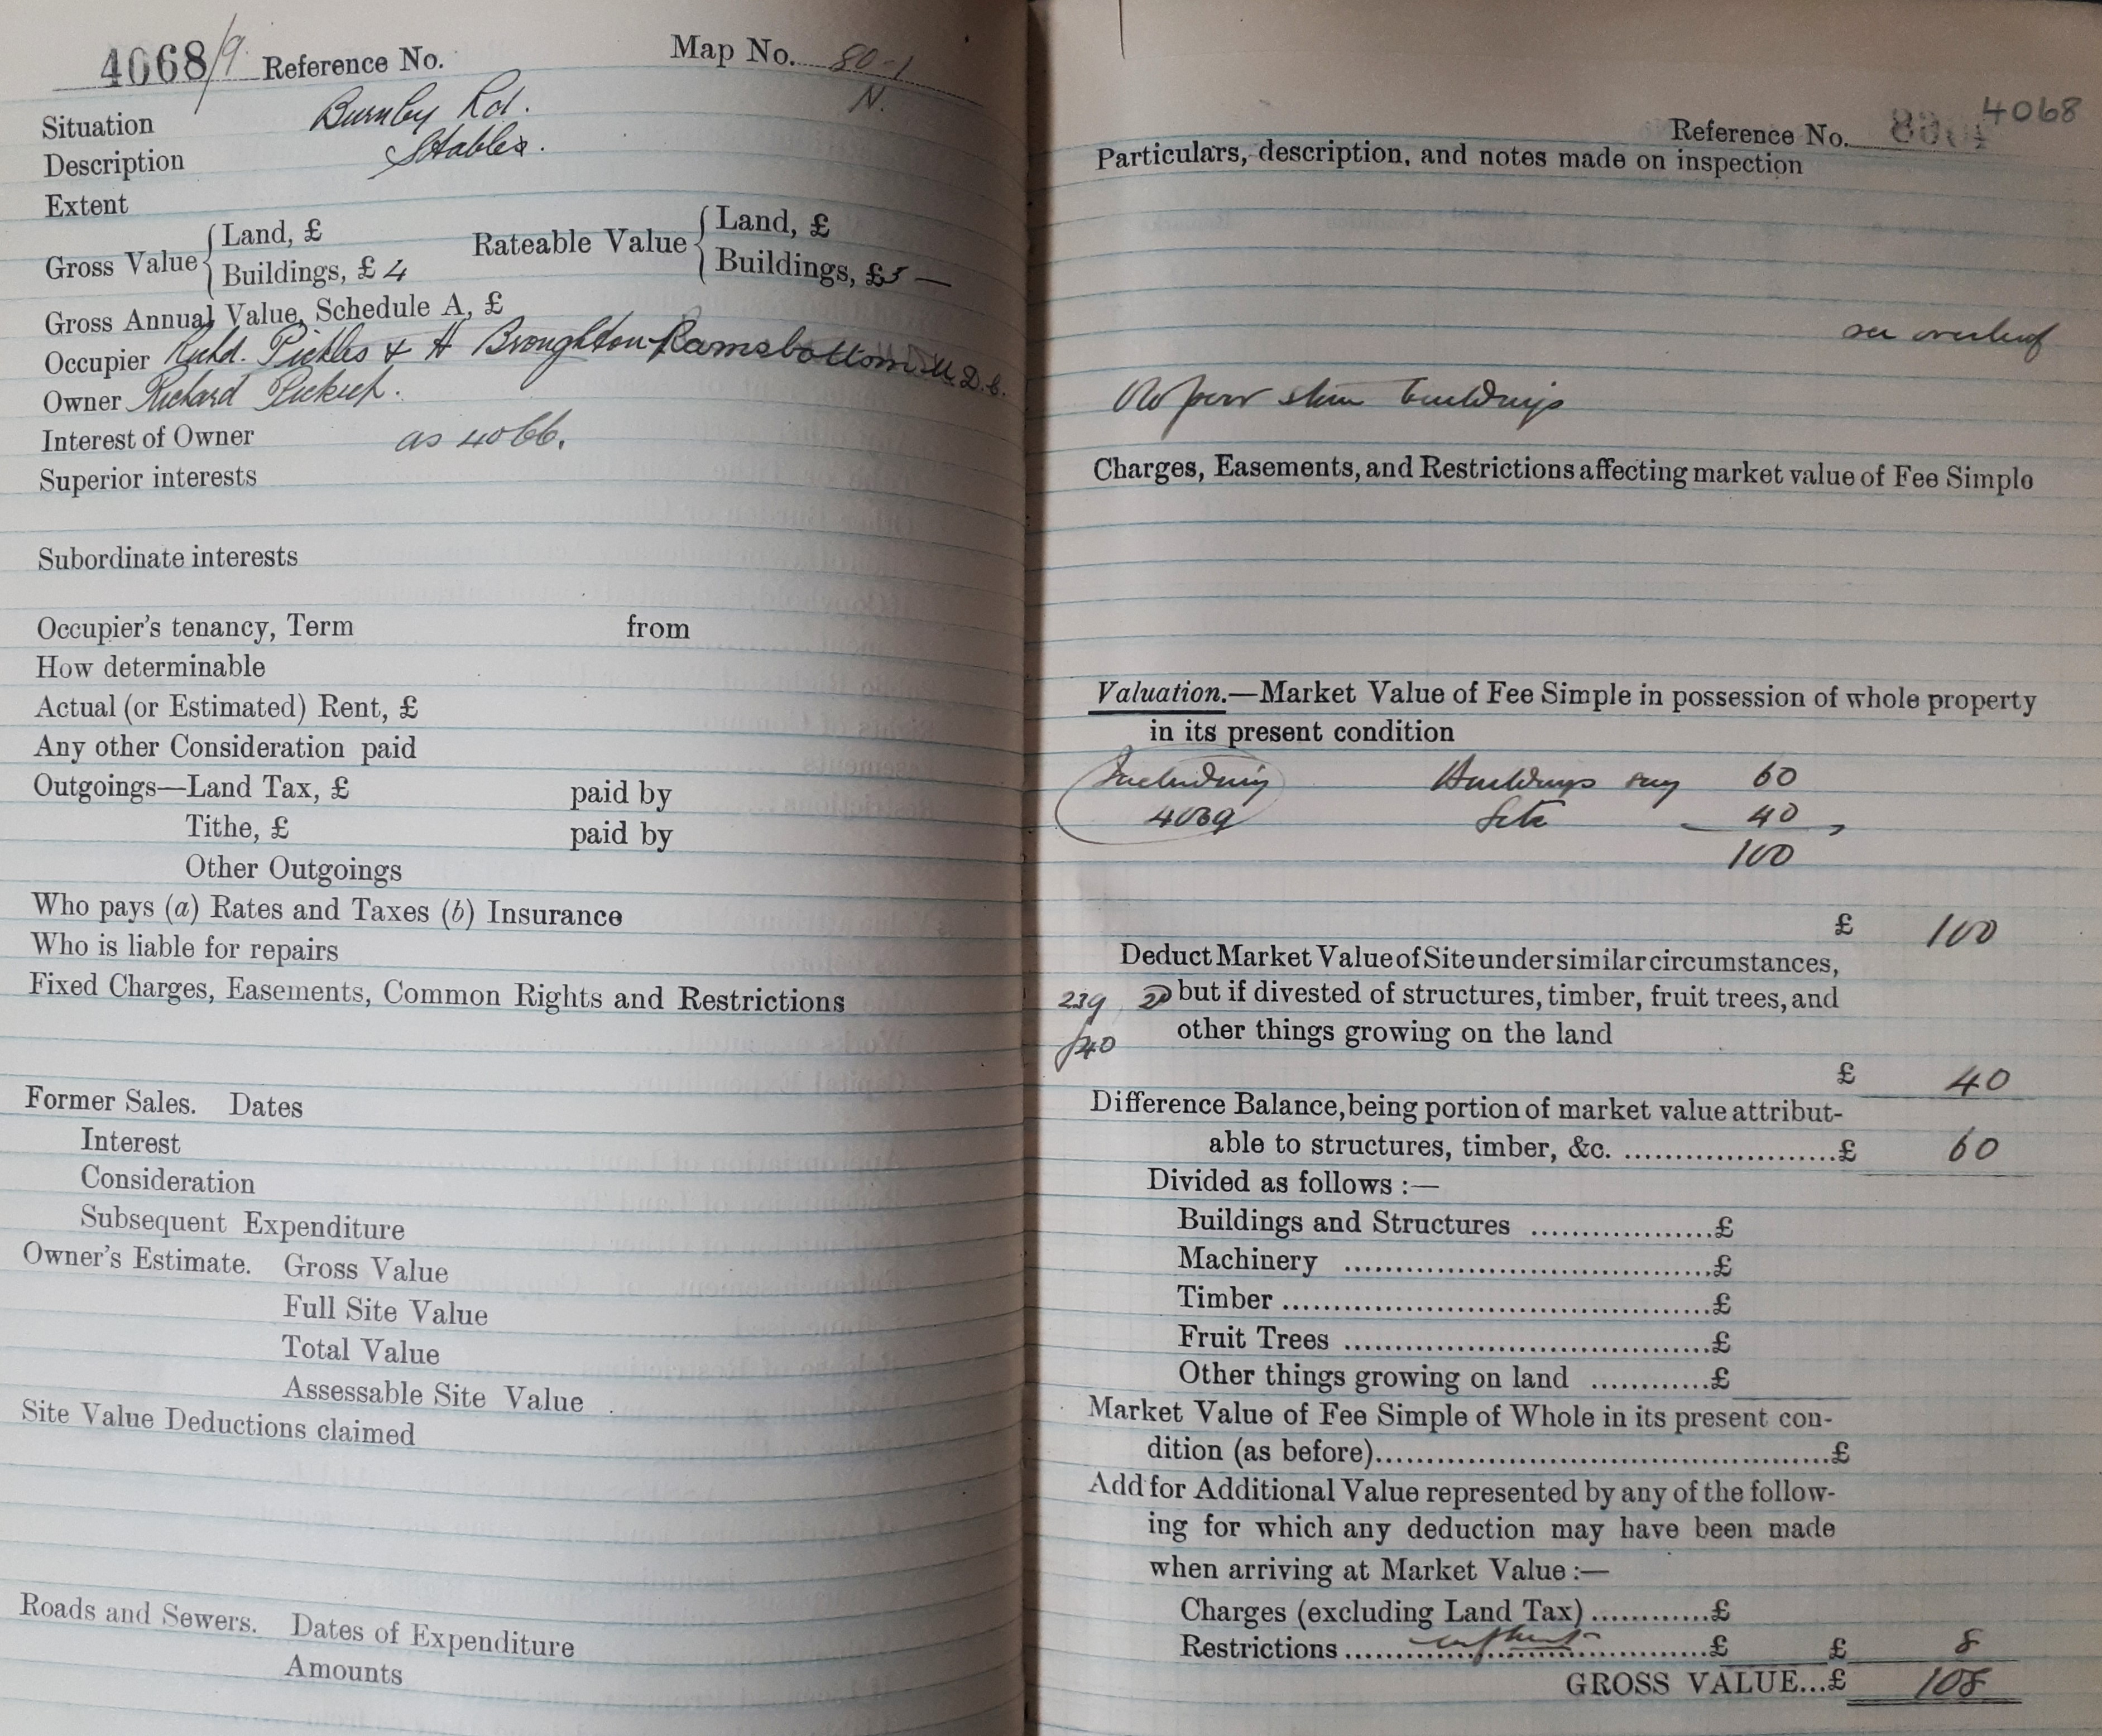 4068/9 Reference No. Map No. 80-1
N.
Situation Burnley Rd.
Description Stables.
Extent
Gross Value { Land, £
Buildings, £ 4
Rateable Value { Land, £
Buildings, £
Gross Annual Value, Schedule A, £
Occupier Richd. Pickles & H Broughton Ramsbottom U.D.C.
Owner Richard
Interest of Owner as 4066.
Superior interests
Subordinate interests
Occupier's tenancy, Term from
How determinable
Actual (or Estimated) Rent, £
Any other Consideration paid
Outgoings—Land Tax, £ paid by
Tithe, £ paid by
Other Outgoings
Who pays (a) Rates and Taxes (b) Insurance
Who is liable for repairs
Fixed Charges, Easements, Common Rights and Restrictions
Former Sales. Dates
Interest
Consideration
Subsequent Expenditure
Owner's Estimate. Gross Value
Full Site Value
Total Value
Assessable Site Value
Site Value Deductions claimed
Roads and Sewers. Dates of Expenditure
Amounts
4068
Reference No.
Particulars, description, and notes made on inspection
see overleaf
poor stone buildings
Charges, Easements, and Restrictions affecting market value of Fee Simple
Valuation.—Market Value of Fee Simple in possession of whole property
in its present condition
Including Buildings say 60
4069 Site 40
100
£ 100
Deduct Market Value of Site under similar circumstances,
239 but if divested of structures, timber, fruit trees, and
£40 other things growing on the land
£ 40
Difference Balance, being portion of market value attribut-
able to structures, timber, &c. ....................£ 60
Divided as follows :—
Buildings and Structures ..................£
Machinery ....................................£
Timber ..........................................£
Fruit Trees ....................................£
Other things growing on land ............£
Market Value of Fee Simple of Whole in its present con-
dition (as before)............................................£
Add for Additional Value represented by any of the follow-
ing for which any deduction may have been made
when arriving at Market Value :—
Charges (excluding Land Tax) ............£
Restrictions ....................................£ £ 8
GROSS VALUE...£ 108